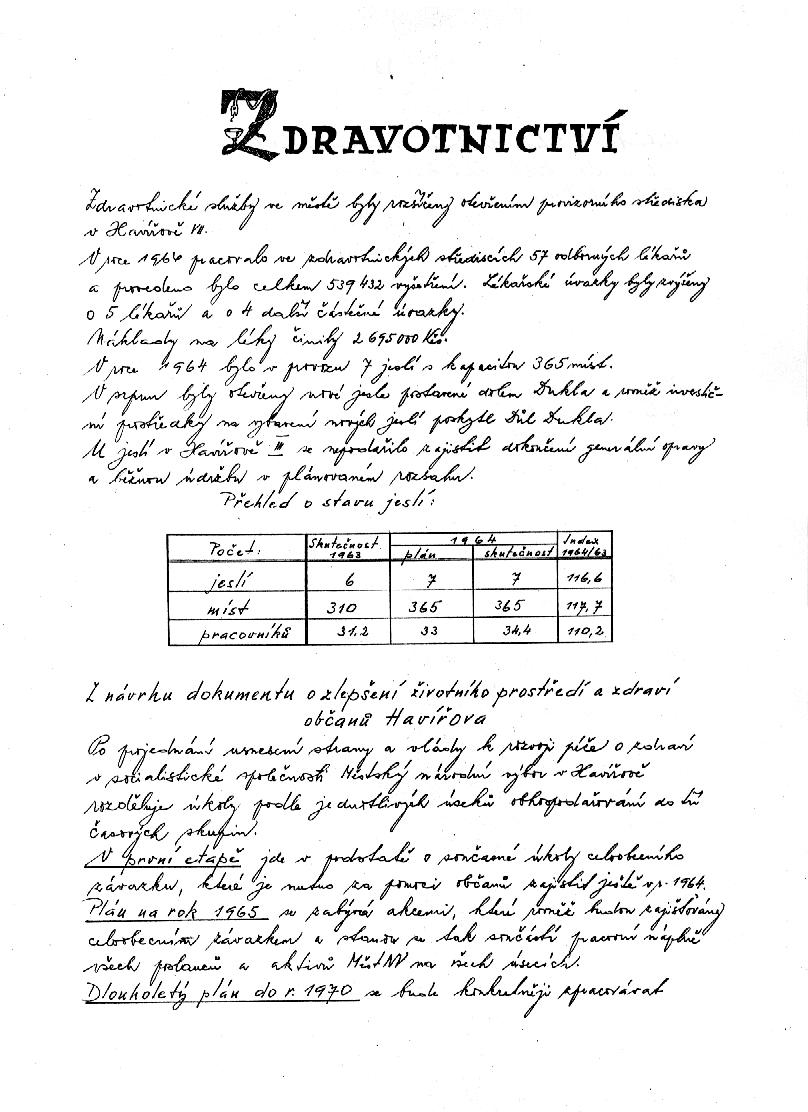 ZDRAVOTNICTVÍ
Zdravotnické služby ve městě byly rozšířeny otevřením provizorního střediska
v Havířově VII.
V roce 1964 pracovalo ve zdravotnických střediscích 57 odborných lékařů
a provedeno bylo celkem 539 432 vyšetření. Lékařské úvazky byly zvýšeny
o 5 lékařů a o 4 další částečné úvazky.
Náklady na léky činily 2 695 000 Kčs.
V roce 1964 bylo v provozu 7 jeslí s kapacitou 365 míst.
V srpnu byly otevřeny nové jesle postavené dolem Dukla a rovněž investič-
ní prostředky na vybavení nových jeslí poskytl Důl Dukla.
U jeslí v Havířově III se nepodařilo zajistit dokončení generální opravy
a běžnou údržbu v plánovaném rozsahu.
Přehled o stavu jeslí:
Počet: Skutečnost 1963 1964 plán skutečnost Index 1964/63
jeslí 6 7 7 116,6
míst 310 365 365 117,7
pracovníků 31.2 33 34,4 110,2
Z návrhu dokumentu o zlepšení životního prostředí a zdraví
občanů Havířova
Po projednání usnesení strany a vlády k rozvoji péče o zdraví
v socialistické společnosti Městský národní výbor v Havířově
rozděluje úkoly podle jednotlivých úseků obhospodařování do tří
časových skupin.
V první etapě jde v podstatě o současné úkoly celoobecního
závazku, které je nutno za pomoci občanů zajistit ještě v r. 1964.
Plán na rok 1965 se zabývá akcemi, které rovněž budou zajišťovány
celoobecním závazkem a stanou se tak součástí pracovní náplně
všech poslanců a aktivů MěstNV na všech úsecích.
Dlouholetý plán do r. 1970 se bude konkretněji zpracovávat